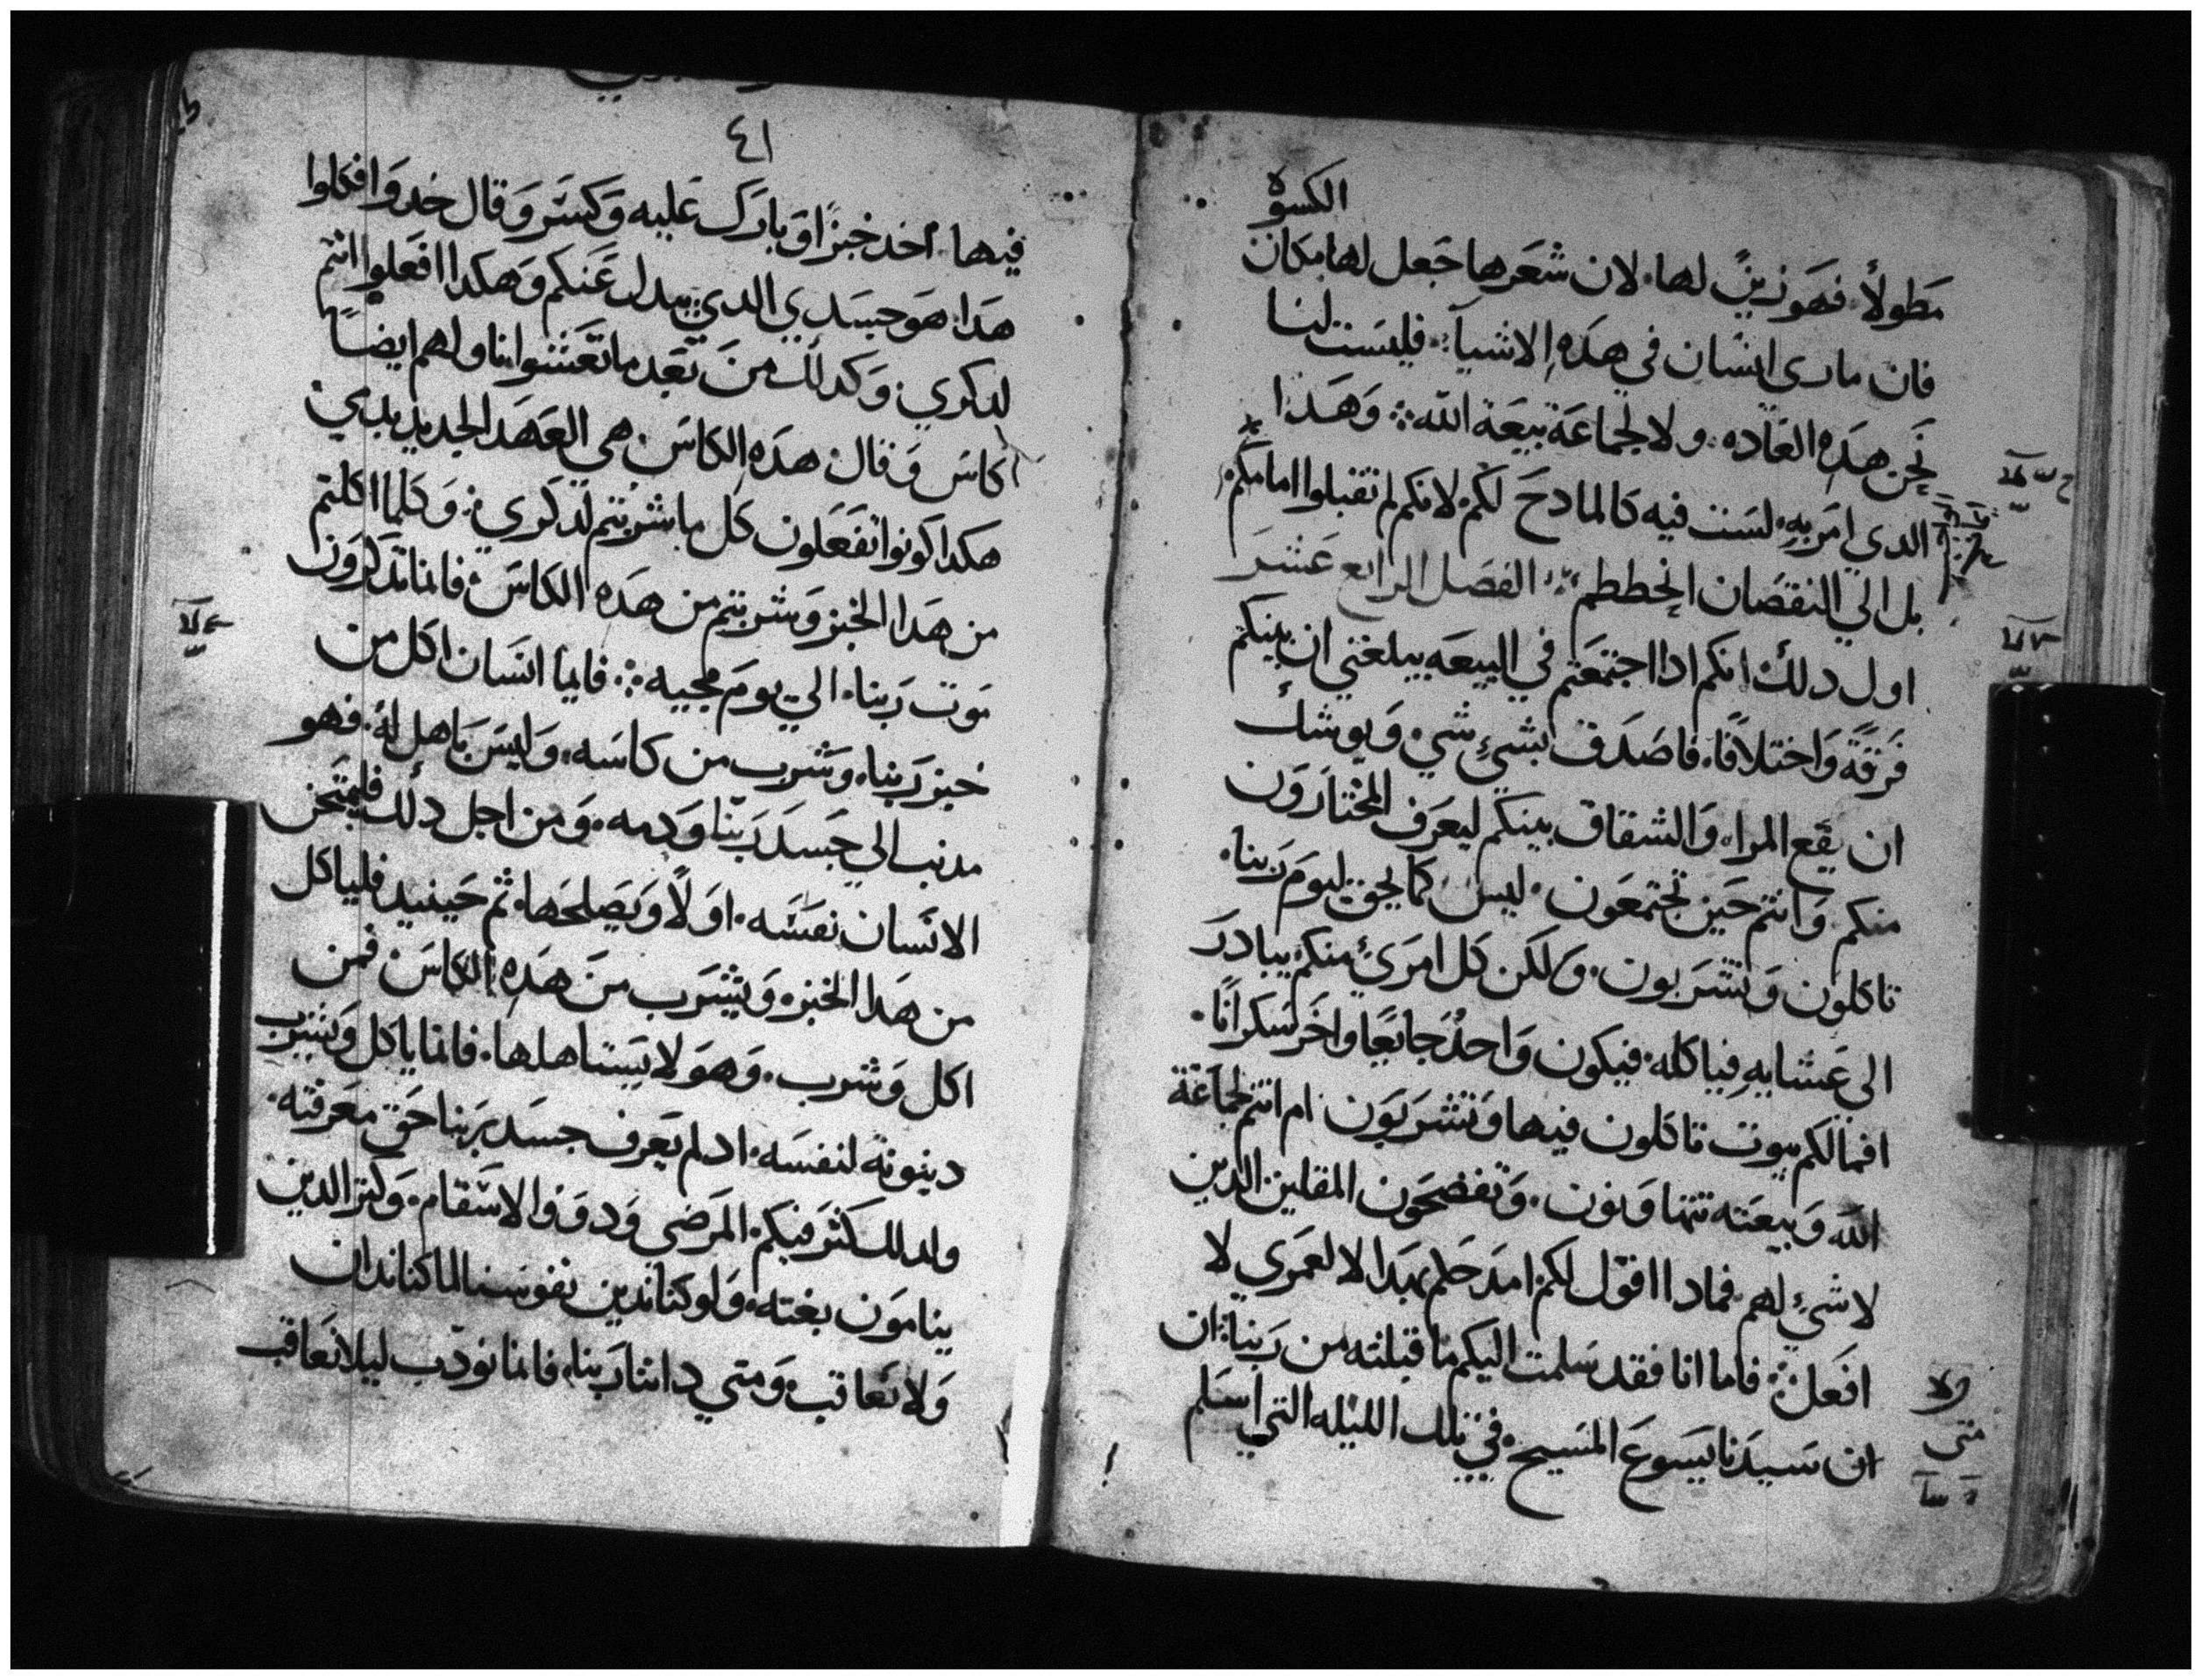 الكسوة
مَطولاً. فهوَ زينٌ لها. لان شعَرها جَعل لها مكان
فان مارى انسَان في هدَهِ الاشيآء. فليسَت لنا
نحَن هدَه العَاده. ولا لجماعَة بيعَة الله ⁘ وَهَدا
الدي امَر بهِ. لسَت فيه كالمادحَ لكم. لانكم لم تقبلوا امامكم.
بل الي النقصَان انحططم. الفصَل الرابع عَشرَ
اول دلك انكم ادا اجتمَعَتم في البيعَه يبلغني ان بينكم
فَرقةً وَاختلافًا. فاصَدَق بشيءٍ شي. وَيوشك
ان يقَع المرا. وَالشقاق بينكم ليعَرف المختارَوَن
منكم وَانتم حَين تجتمعَون. ليسَ كما يحق ليومَ رَبنا.
تاكلون وَتشرَبون. وَلكن كل امرَئٍ منكم يبادرَ
الى عَشايهِ فياكله. فيكون وَاحدٌ جَايعًا واخرَ سَكرانًا.
افما لكم بيوت تاكلون فيها وَتشرَبوَن ام انتم لجماعَة
الله وَبيعَته تتهاوَنون. وَتفضحَون المقلين الدين
لا شيءٍ لهم. فمادا اقوَل لكم امدَحكم بهدَا لا لعمَري لا
افعَل ⁘ فاما انا فقد سَلمت اليكم ما قبلته من رَبنا. ان
ان سَيدَنا يسَوعَ المسَيح. في تلك الليله التي اسَلم
متى
٤١
فيها. اخد خبزًا وَبارَك عَليه وَكسَر وَقال خدوَا فكلوا
هدَا هوَ جسَدي الدي يبدل عَنكم وَهكدا افعَلوا انتم
لدكري. وَكدلك منَ بعَد ما تعَشوا ناولهم ايضًا
كاسَ وَقال هدَهِ الكاسَ. هي العَهدَ الجديد بدمي
هكدا كونوا تفعَلون كل ما شربتم لدكرَي. وَكلما اكلتم
من هدَا الخبز وَشربتم من هدَه الكاسَ فانما تدكرَوَن
مَوت رَبنا. الي يومَ مجيه ⁘ فايما انسَان اكل من
خبز رَبنا. وشَرب من كاسَه. وَليسَ باهل له. فهو
مدنب الي جَسَدَ رَبنا وَدمه. وَمن اجل دلك فليمتحَن
الانسَان نفسَه. اوَلاً وَيصَلحَها. ثم حَينيد فلياكل
من هدَا الخبز. وَيشرَب منَ هدَهِ الكاسَ فمن
اكل وَشرب. وَهوَ لا يسَتاهلها. فانما ياكل وَيشرب
دينونة لنفسَه. اد لم يعَرف جسَد رَبنا حَق معَرفته.
ولدلك كثرَ فيكم المرَضي وَدوَوا الاسَقام. وَكثر الدين
ينامَون بغته. وَلو كنا ندين نفوسَنا لما كنا ندان
وَلا نعَاقب. وَمتي داننا رَبنا. فانما نودب ليلا نعَاقب